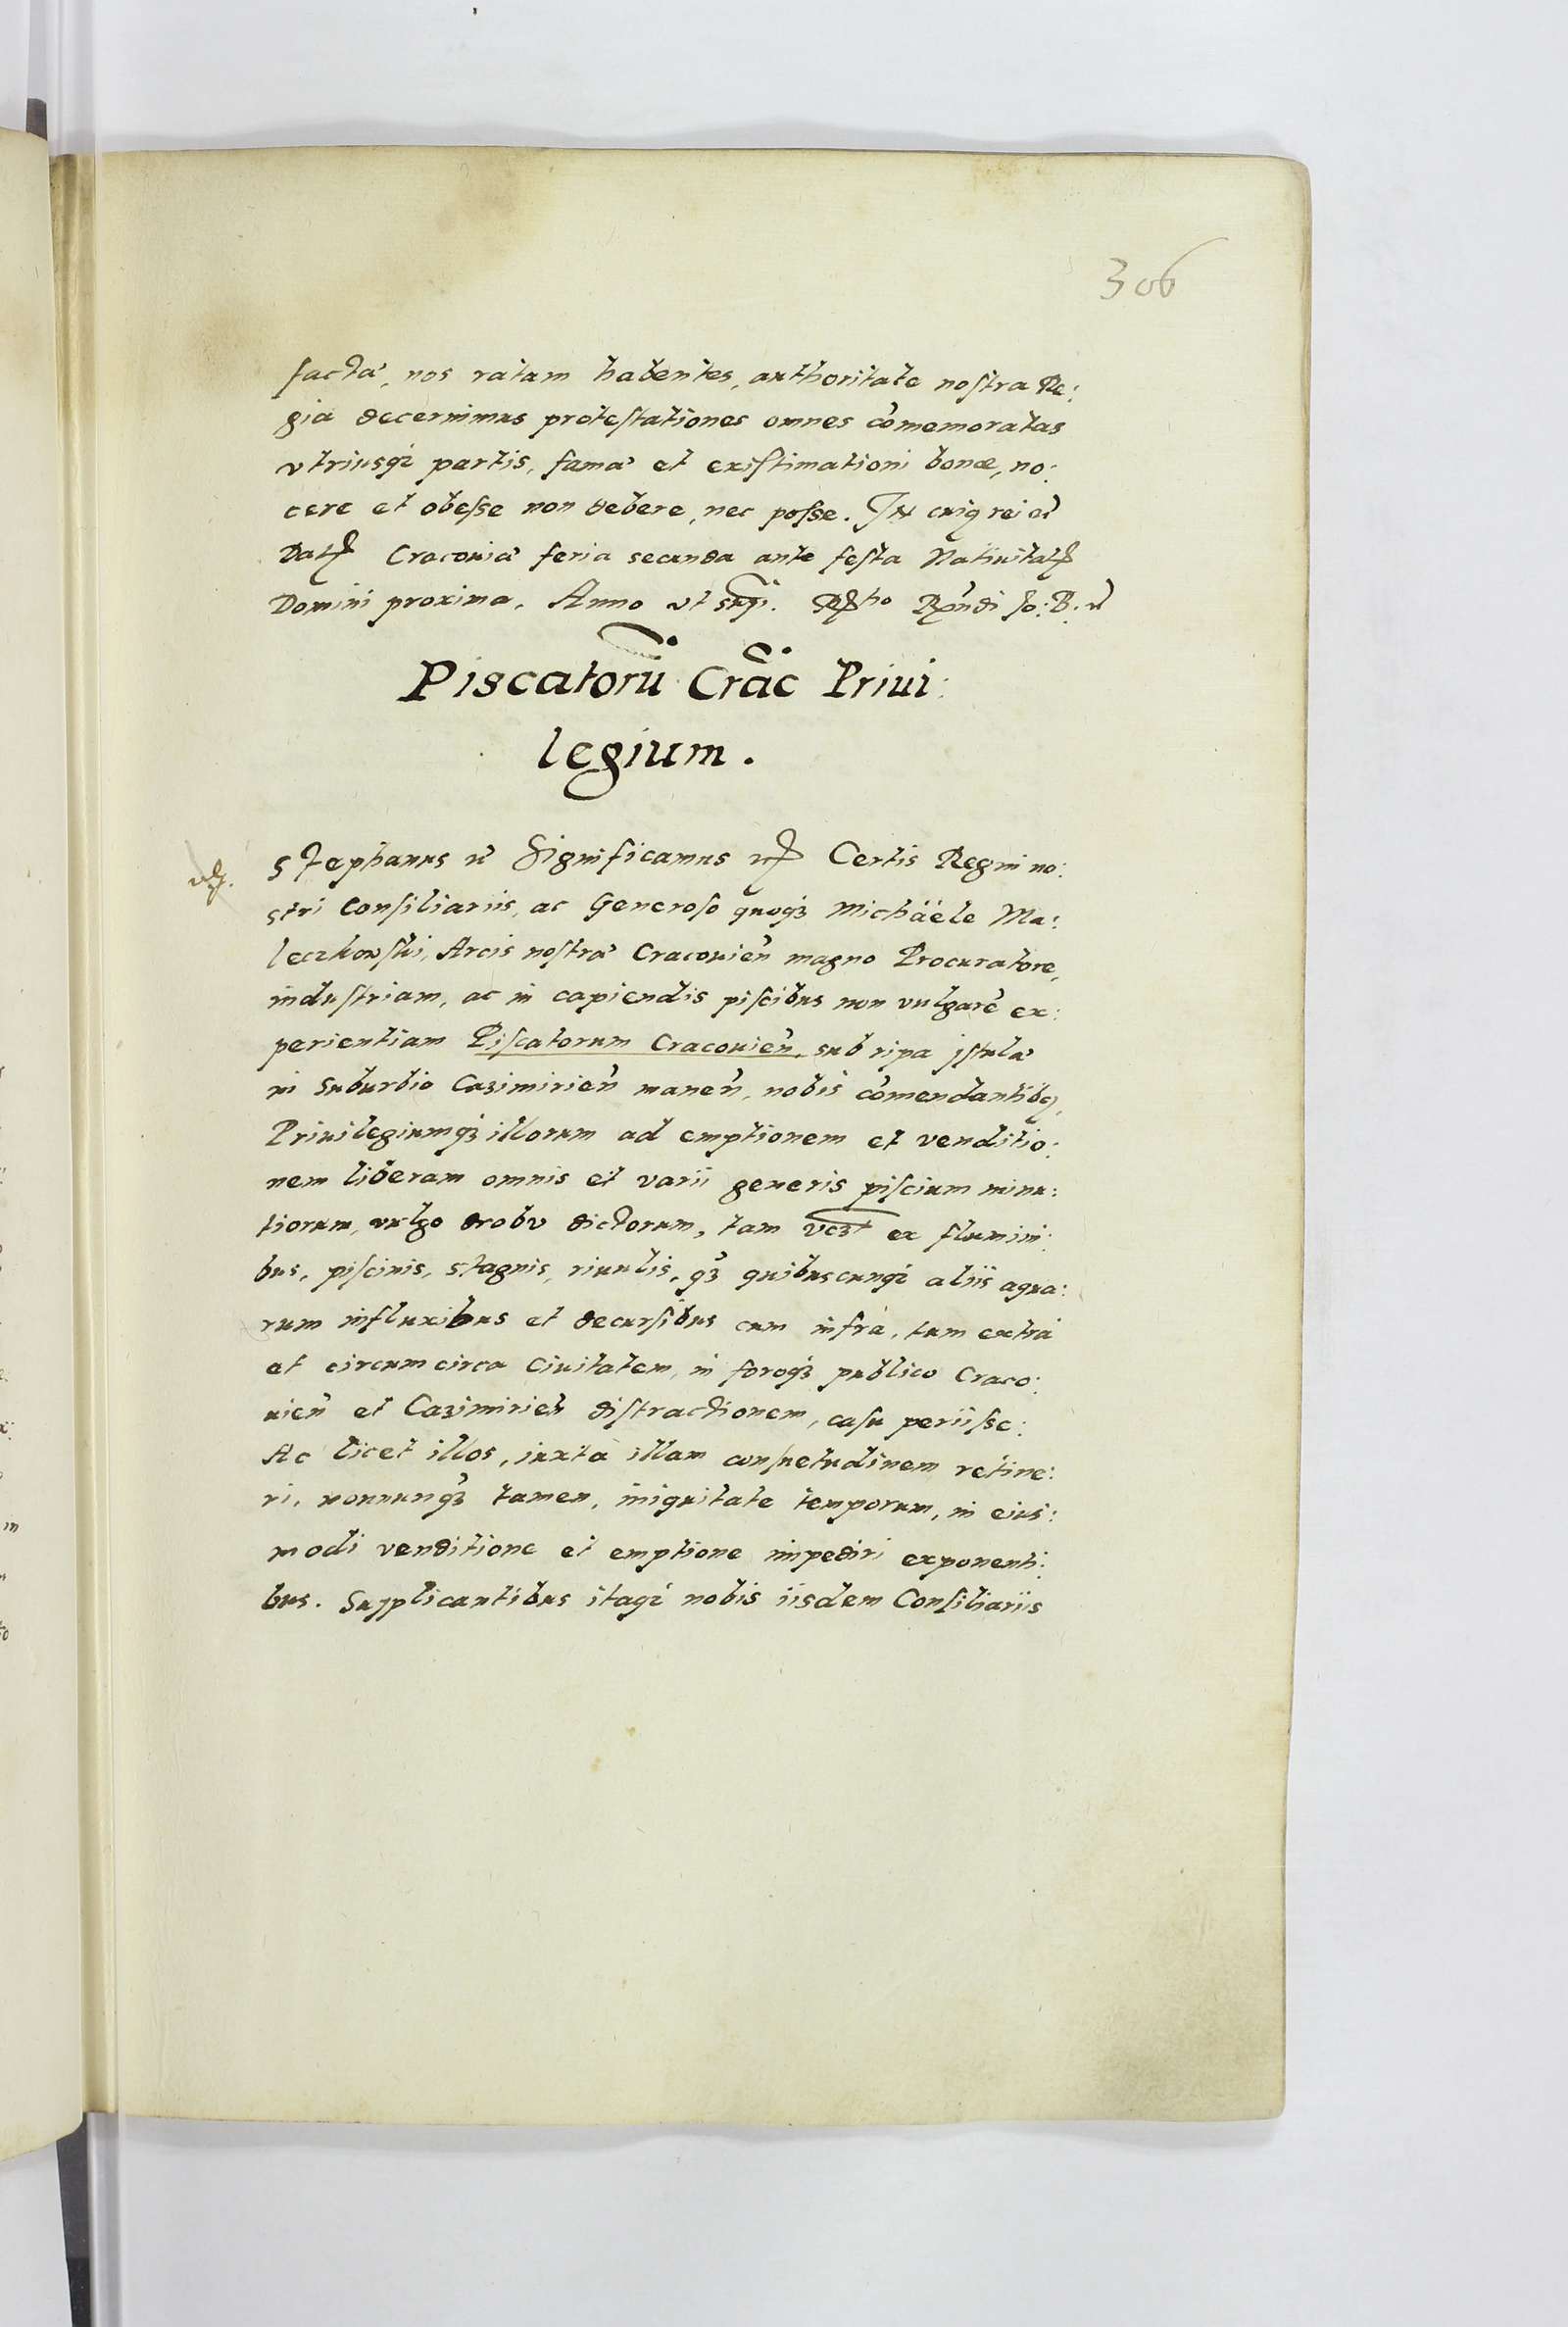 306
facta, nos ratam habentes, authoritate nostra Re:
gia decernimus protestationes omnes comemoratas
vtriusq; partis, fama et existimationi bonæ, no:
cere et obesse non debere, nec posse. In cuig rei
Dat Cracouia feria secunda ante festa Natiuitat
Domini proxima. Anno vt
Piscatorū Crac Priui:
legium.
Stephanus Significamus Certis Regni no:
stri Consiliariis, ac Generoso quoq; Michäele Ma:
leczkowski, Arcis nostra Cracouien magno Procuratore,
industriam, ac in capiendis piscibus non vulgarē ex:
perientiam Piscatorum Cracouien, sub ripa istula
in Suburbio Cazimirien manen, nobis comendantibq,
Priuilegiumq; illorum ad emptionem et venditio:
nem liberam omnis et varii generis piscium minu:
tiorum, vulgo drobu dictorum, tam vczt ex flumini:
bus, piscinis, stagnis, riuulis, qz quibuscunq; aliis aqua:
rum influxibus et decursibus cum infrà, tum extrà
et circumcirca Ciuitatem, in foroq; publico Craco:
uien et Cazimirien distractionem, casu periisse:
Ac licet illos, iuxtà illam consuetudinem retine:
ri, nonnunqz tamen, iniquitate temporum, in eius:
modi venditione et emptione impediri exponenti:
bus. Supplicantibus itaq; nobis iisdem Consiliariis